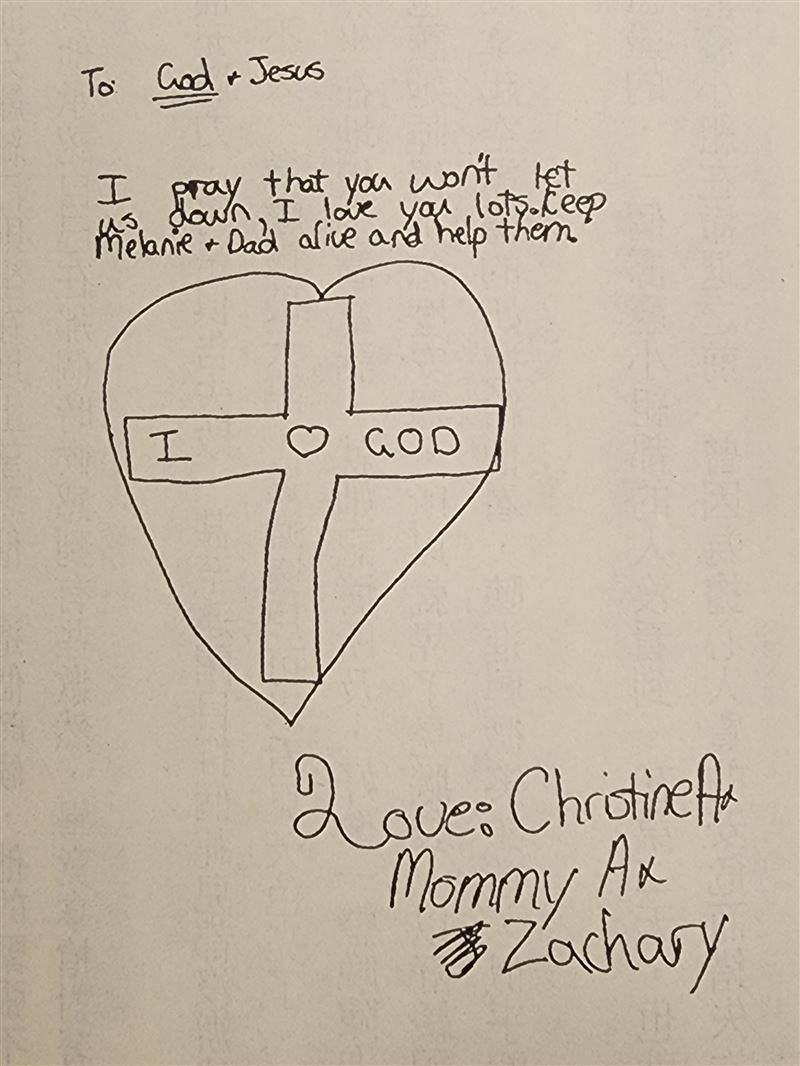 To: God + Jesus
I pray that you won't let
us down, I love you lots. Keep
Melanie + Dad alive and help them.
I ♡ GOD
Love: Christine A
Mommy A
Zachary